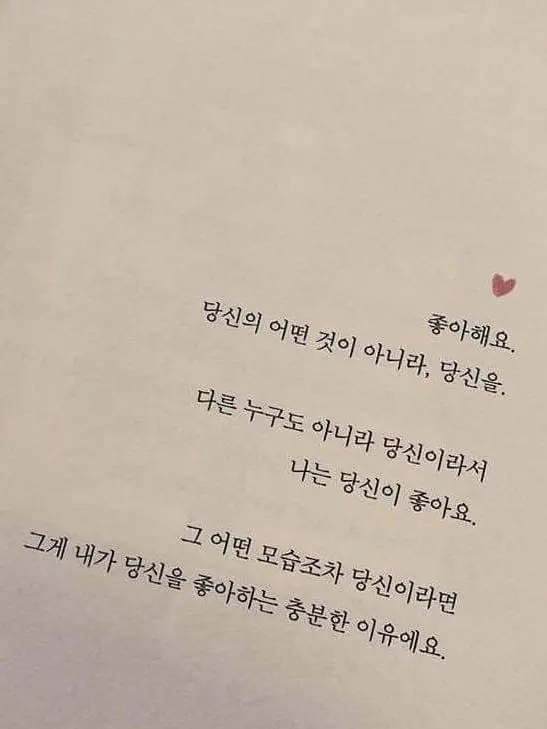 좋아해요.
당신의 어떤 것이 아니라, 당신을.
다른 누구도 아니라 당신이라서
나는 당신이 좋아요.
그 어떤 모습조차 당신이라면
그게 내가 당신을 좋아하는 충분한 이유에요.